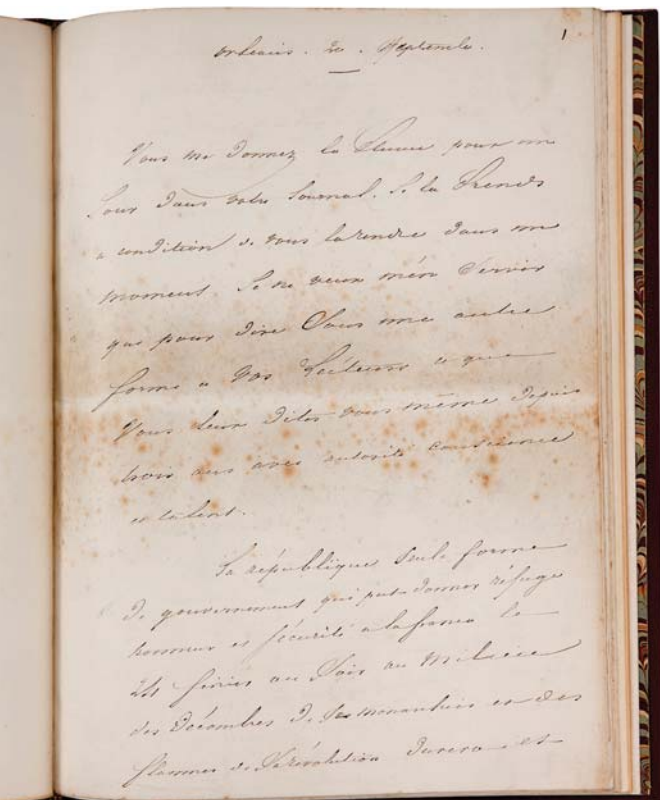 orleans. 20. Septembre.
1
Vous me donnez la Plume pour un
Jour dans votre Journal. Je la Prends
a condition de vous la rendre dans un
moment. Je ne veux m'en Servir
que pour dire Sous une autre
forme a vos Lecteurs ce que
Vous leur dites vous même depuis
trois ans avec autorité conscience
et talent.
La république Seule forme
de gouvernement qui put donner réfuge
honneur et Sécurité a la france le
24 février au Soir au Milieu
des Décombres de Ses monarchies et des
flammes de Sa révolution durera et